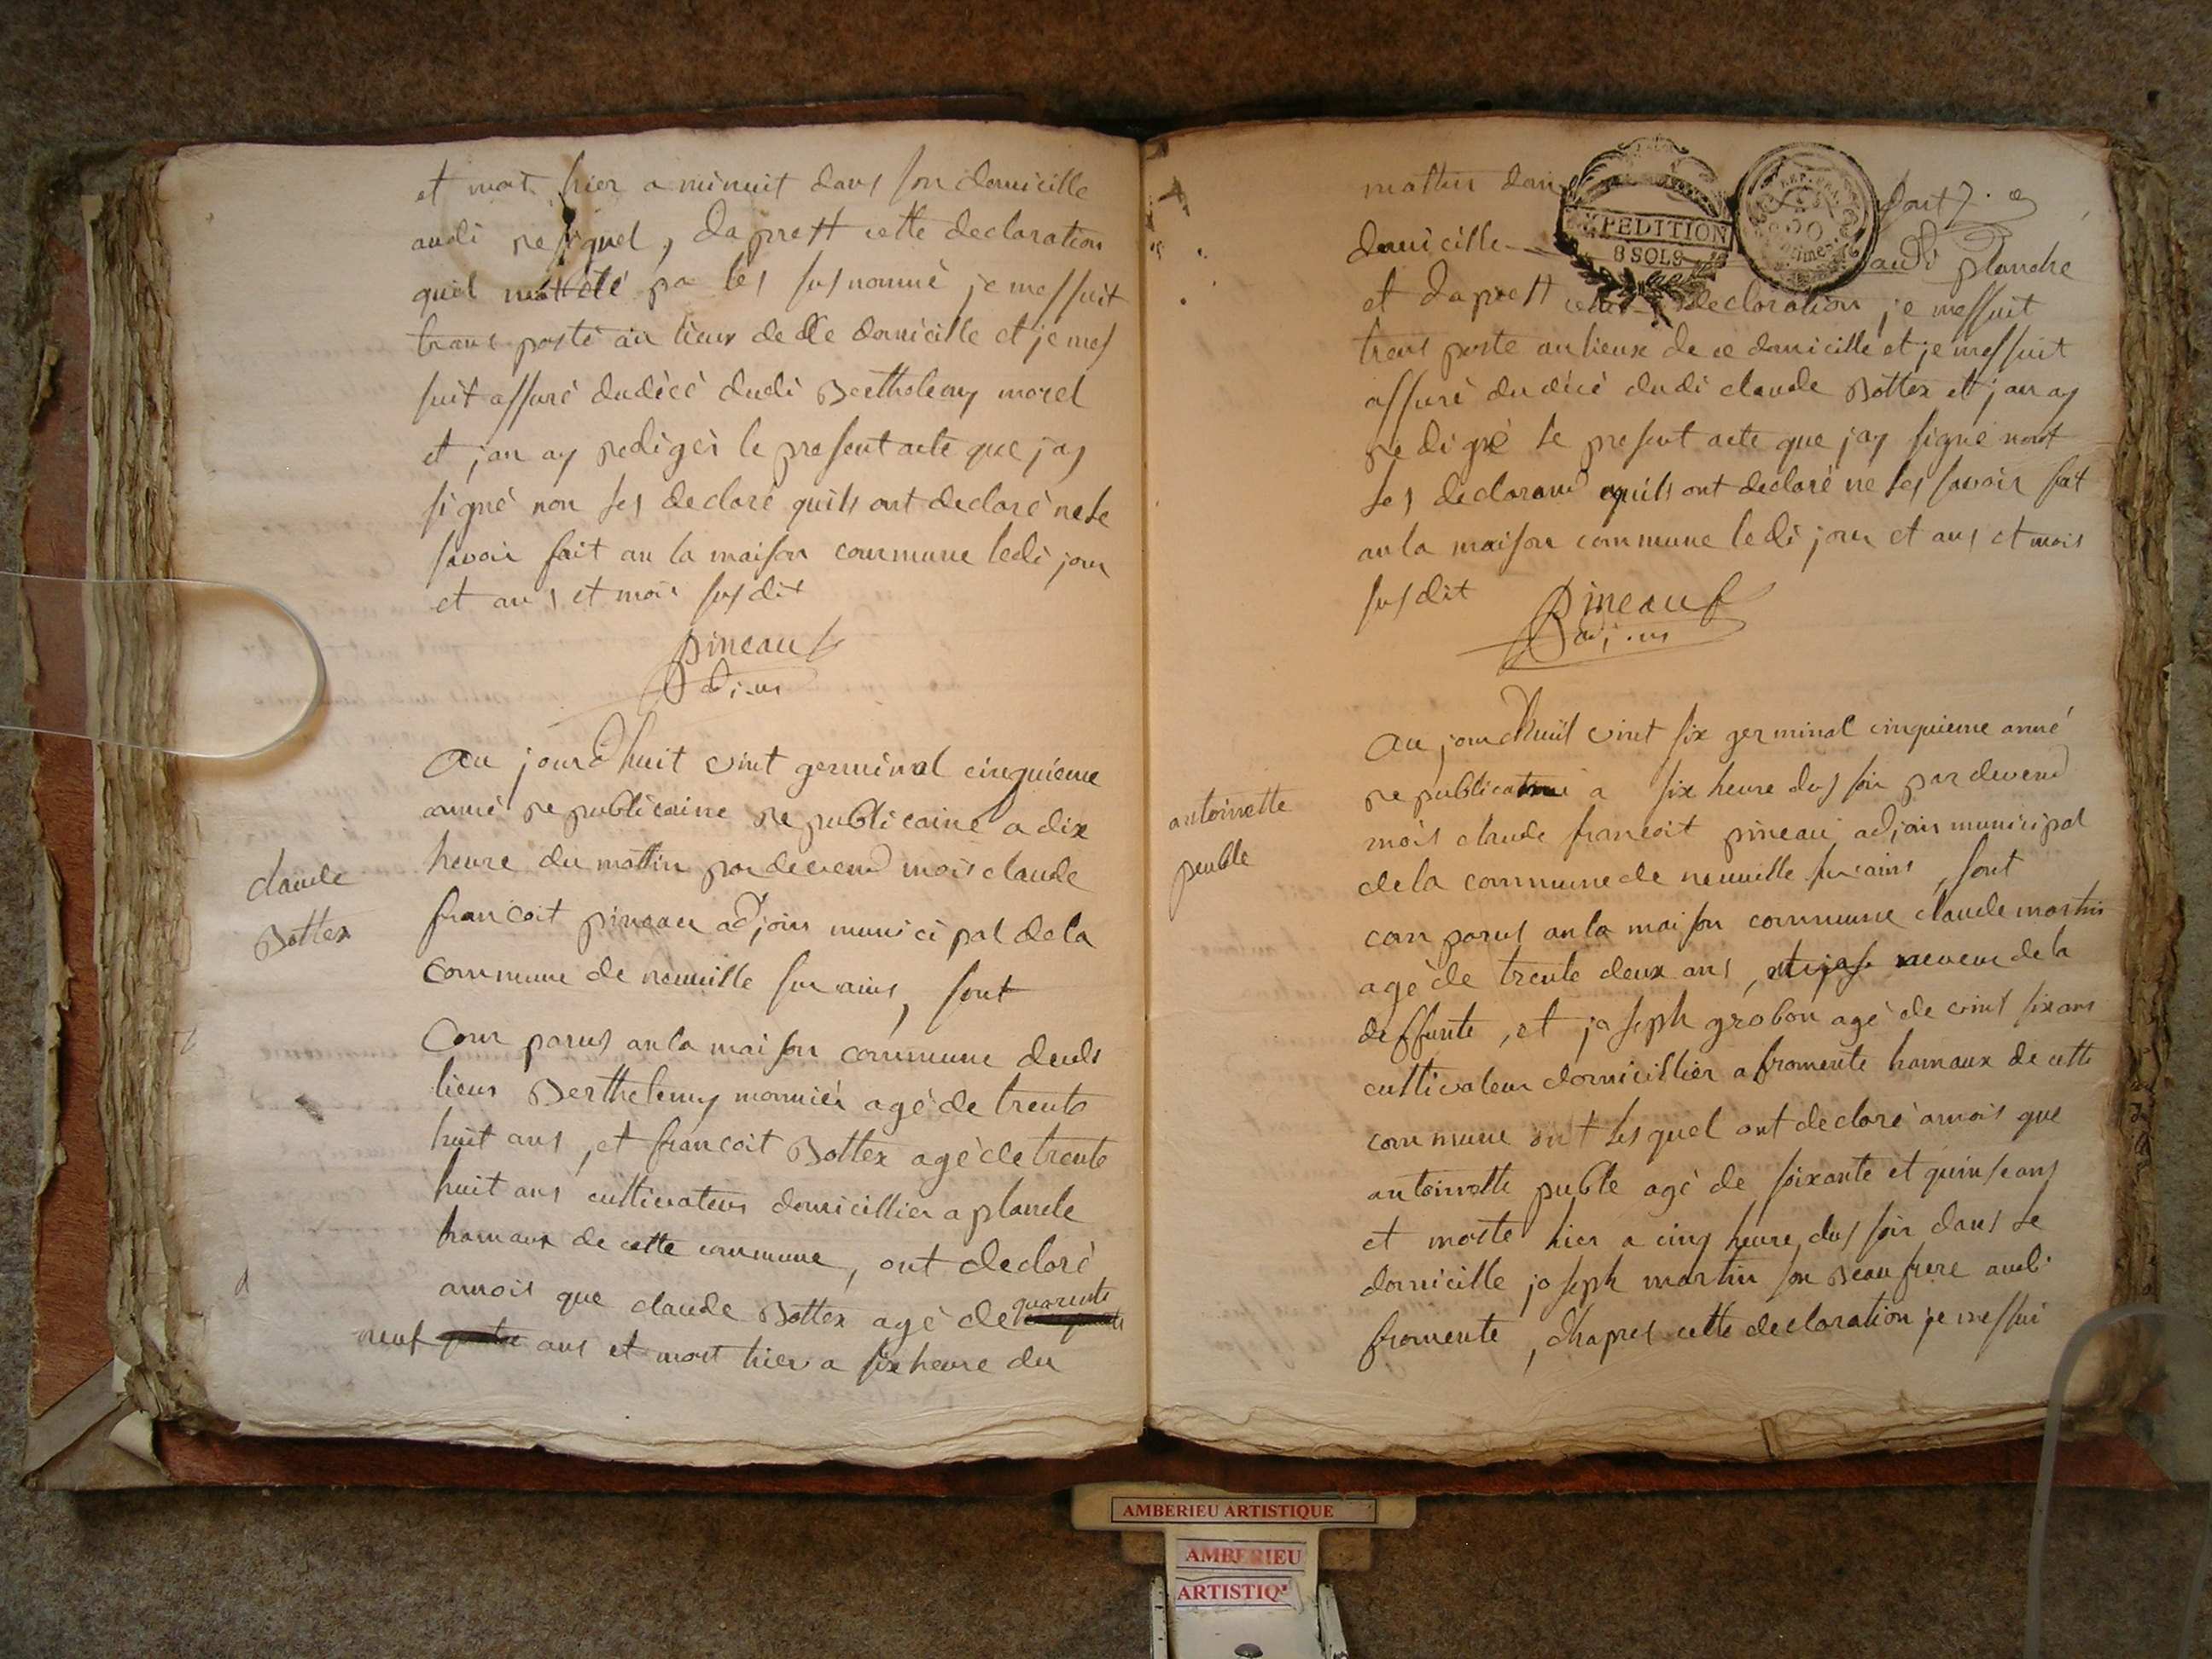 et mort hier a minuit dans son domicille
audi resignel, daprest cette declaration
quil mat été pa les susnommé je messuit
trans porté au lieux de ce domicille et je mes
suit assuré du décé dudi Berthelemy morel
et jan ay rediger le present acte que jay
signé non les declaré quils ont declaré ne le
savoir fait an la maison commune ledi jour
et ans et mois susdit
pineau
adj.m
Au jourdhuit vint germinal cinquieme
anné republicaine republicaine a dix
heure du mattin par devend mois claude
claude
Bottex
francoit pineau adjoin municipal de la
commune de neuville sur ains, sont
Com parus an la maison commune dudi
lieux Berthelemy monnier agé de trente
huit ans, et francoit Bottex agé de trente
huit ans cultivateur domicillier a planche
hamaux de cette commune, ont declaré
amois que claude Bottex agé de quarente
neuf ans et mort hier a six heure du
mattin dans
EXPEDITION
8 SOLS
REP. FRA
50
domicille audi planche
et daprest cette declaration, je messuit
trans porte au lieux de ce domicille et je messuit
assuré du décé dudi claude Bottex et jan ay
redigré le present acte que jay signé nont
les declarand quils ont declaré ne les savoir fait
an la maison commune ledi jour et ans et mois
susdit
pineau
adj.m
Au jourdhuit vint six germinal cinquieme anné
republicaine a six heure dus soir par devend
antoinette
peuble
mois claude francoit pineau adjoin municipal
de la commune de neuville sur ains, sont
com parus an la maison commune claude martin
agé de trente deux ans, neveux de la
deffunte, et joseph grobon agé de vint six ans
cultivateur domicillier a fromente hamaux de cette
commune ont lesquel ont declaré amois que
antoinette puble agé de soixante et quinse ans
et morte hier a cinq heure dus soir dans le
domicille joseph martin son Beau frere audi
fromente, dhapres cette declaration je messui
AMBERIEU ARTISTIQUE
AMBERIEU
ARTISTIQ